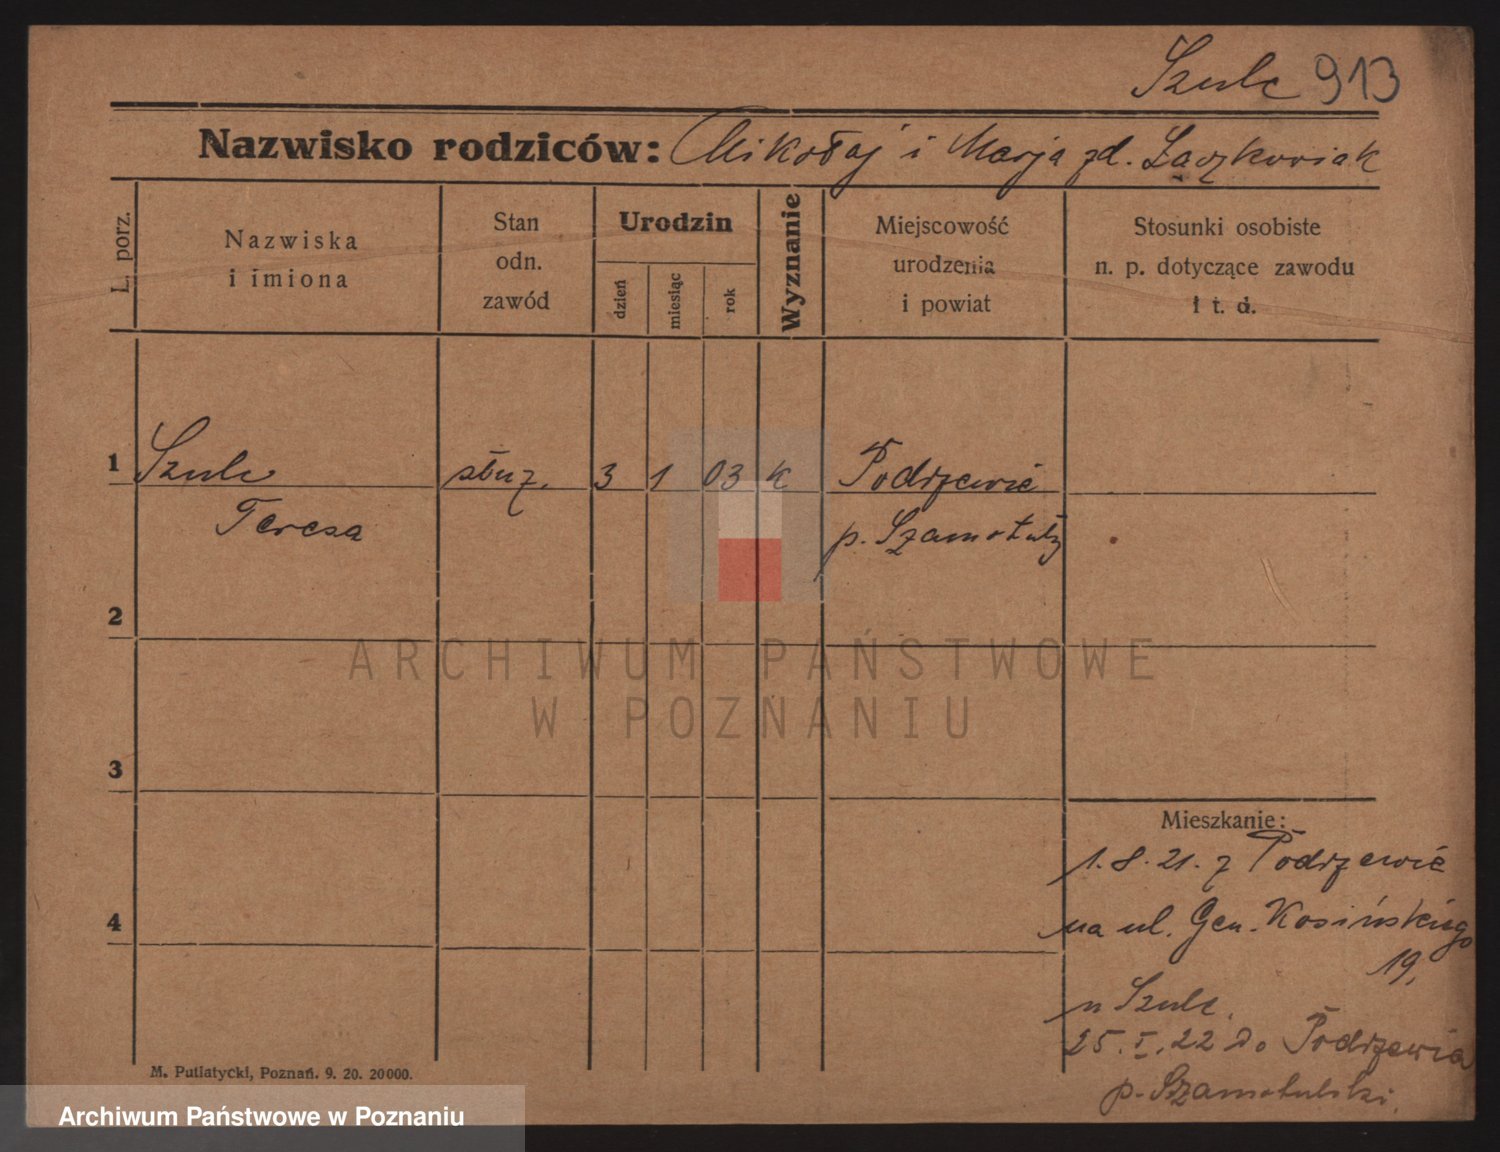 Szulc 913
Nazwisko rodziców: Mikołaj i Marja zd. Łączkowiak
L. porz.
Nazwiska
i imiona
Stan
odn.
zawód
Urodzin
dzień
miesiąc
rok
Wyznanie
Miejscowość
urodzenia
i powiat
Stosunki osobiste
n. p. dotyczące zawodu
i t. d.
1 Szulc służ. 3 1 03 k Podrzewie
Teresa p. Szamotuły
2
ARCHIWUM PAŃSTWOWE
W POZNANIU
3
Mieszkanie:
1.8.21. z Podrzewie
4
na ul. Gen. Kosińskiego
19,
u Szulc.
25.I.22 do Podrzewia
p. Szamotulski.
M. Putiatycki, Poznań. 9. 20. 20000.
Archiwum Państwowe w Poznaniu